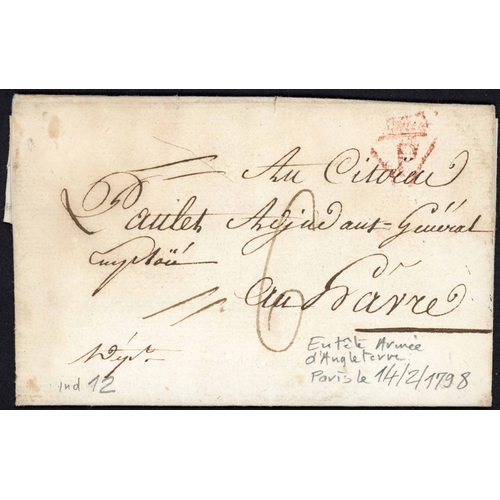 P
Au Citoïen
Paulet Adjudant=Général
employé
6
au Hâvre
Dépt.
En tête Armée
d'Angleterre
ind 12
Paris le 14/2/1798